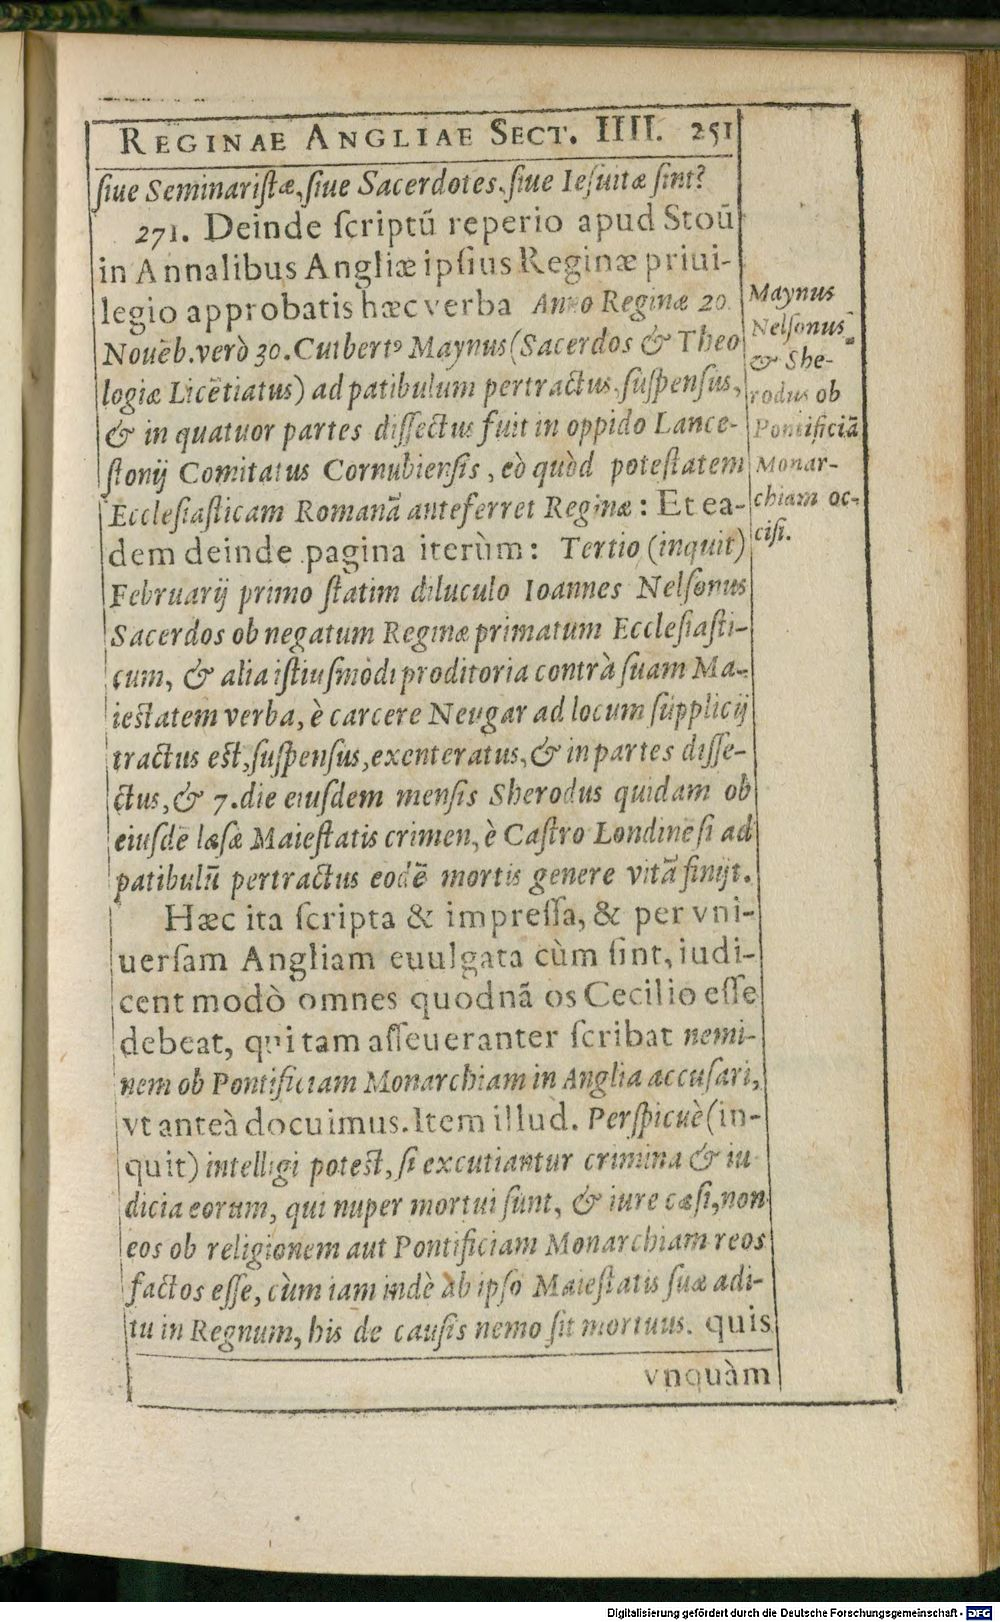 REGINAE ANGLIAE SECT. IIII. 251
ſiue Seminariſtæ, ſiue Sacerdotes, ſiue Ieſuitæ ſint?
271. Deinde ſcriptū reperio apud Stoū
in Annalibus Angliæ ipſius Reginæ priui-
legio approbatis hæc verba Anno Reginæ 20.
Nouēb. verò 30. Cutbertꝰ Maynus (Sacerdos & Theo
logiæ Licētiatus) ad patibulum pertractus, ſuſpenſus,
& in quatuor partes diſſectus fuit in oppido Lance-
ſtonij Comitatus Cornubienſis, eò quòd poteſtatem
Eccleſiaſticam Romanā anteferret Reginæ: Et ea-
dem deinde pagina iterùm: Tertio (inquit)
Februarij primo ſtatim diluculo Ioannes Nelſonus
Sacerdos ob negatum Reginæ primatum Eccleſiaſti-
cum, & alia iſtiuſmodi proditoria contrà ſuam Ma-
ieſtatem verba, è carcere Neugar ad locum ſupplicij
tractus eſt, ſuſpenſus, exenteratus, & in partes diſſe-
ctus, & 7. die eiuſdem menſis Sherodus quidam ob
eiuſdē læſæ Maieſtatis crimen, è Caſtro Londinēſi ad
patibulū pertractus eodē mortis genere vitā finijt.
Hæc ita ſcripta & impreſſa, & per vni-
uerſam Angliam euulgata cùm ſint, iudi-
cent modò omnes quodnā os Cecilio eſſe
debeat, qui tam aſſeueranter ſcribat nemi-
nem ob Pontificiam Monarchiam in Anglia accuſari,
vt anteà docuimus. Item illud. Perſpicuè (in-
quit) intelligi poteſt, ſi excutiantur crimina & iu
dicia eorum, qui nuper mortui ſunt, & iure cæſi, non
eos ob religionem aut Pontificiam Monarchiam reos
factos eſſe, cùm iam indè ab ipſo Maieſtatis ſuæ adi-
tu in Regnum, his de cauſis nemo ſit mortuus. quis
vnquàm
Maynus
Nelſonus
& She-
rodus ob
Pontificiā
Monar-
chiam oc-
ciſi.
Digitalisierung gefördert durch die Deutsche Forschungsgemeinschaft - DFG